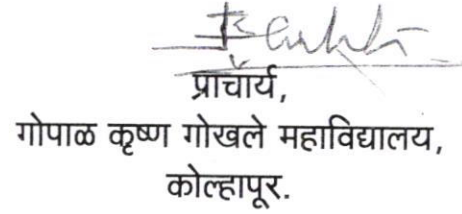 प्राचार्य,
गोपाळ कृष्ण गोखले महाविद्यालय,
कोल्हापूर.